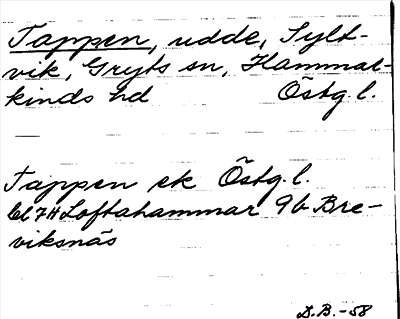 Tappen, udde, Sylt-
vik, Gryts sn, Hammar-
kinds hd Östg. l.
Tappen ek Östg. l.
bl 7H Loftahammar 9b Bre-
viksnäs
D.B.-58